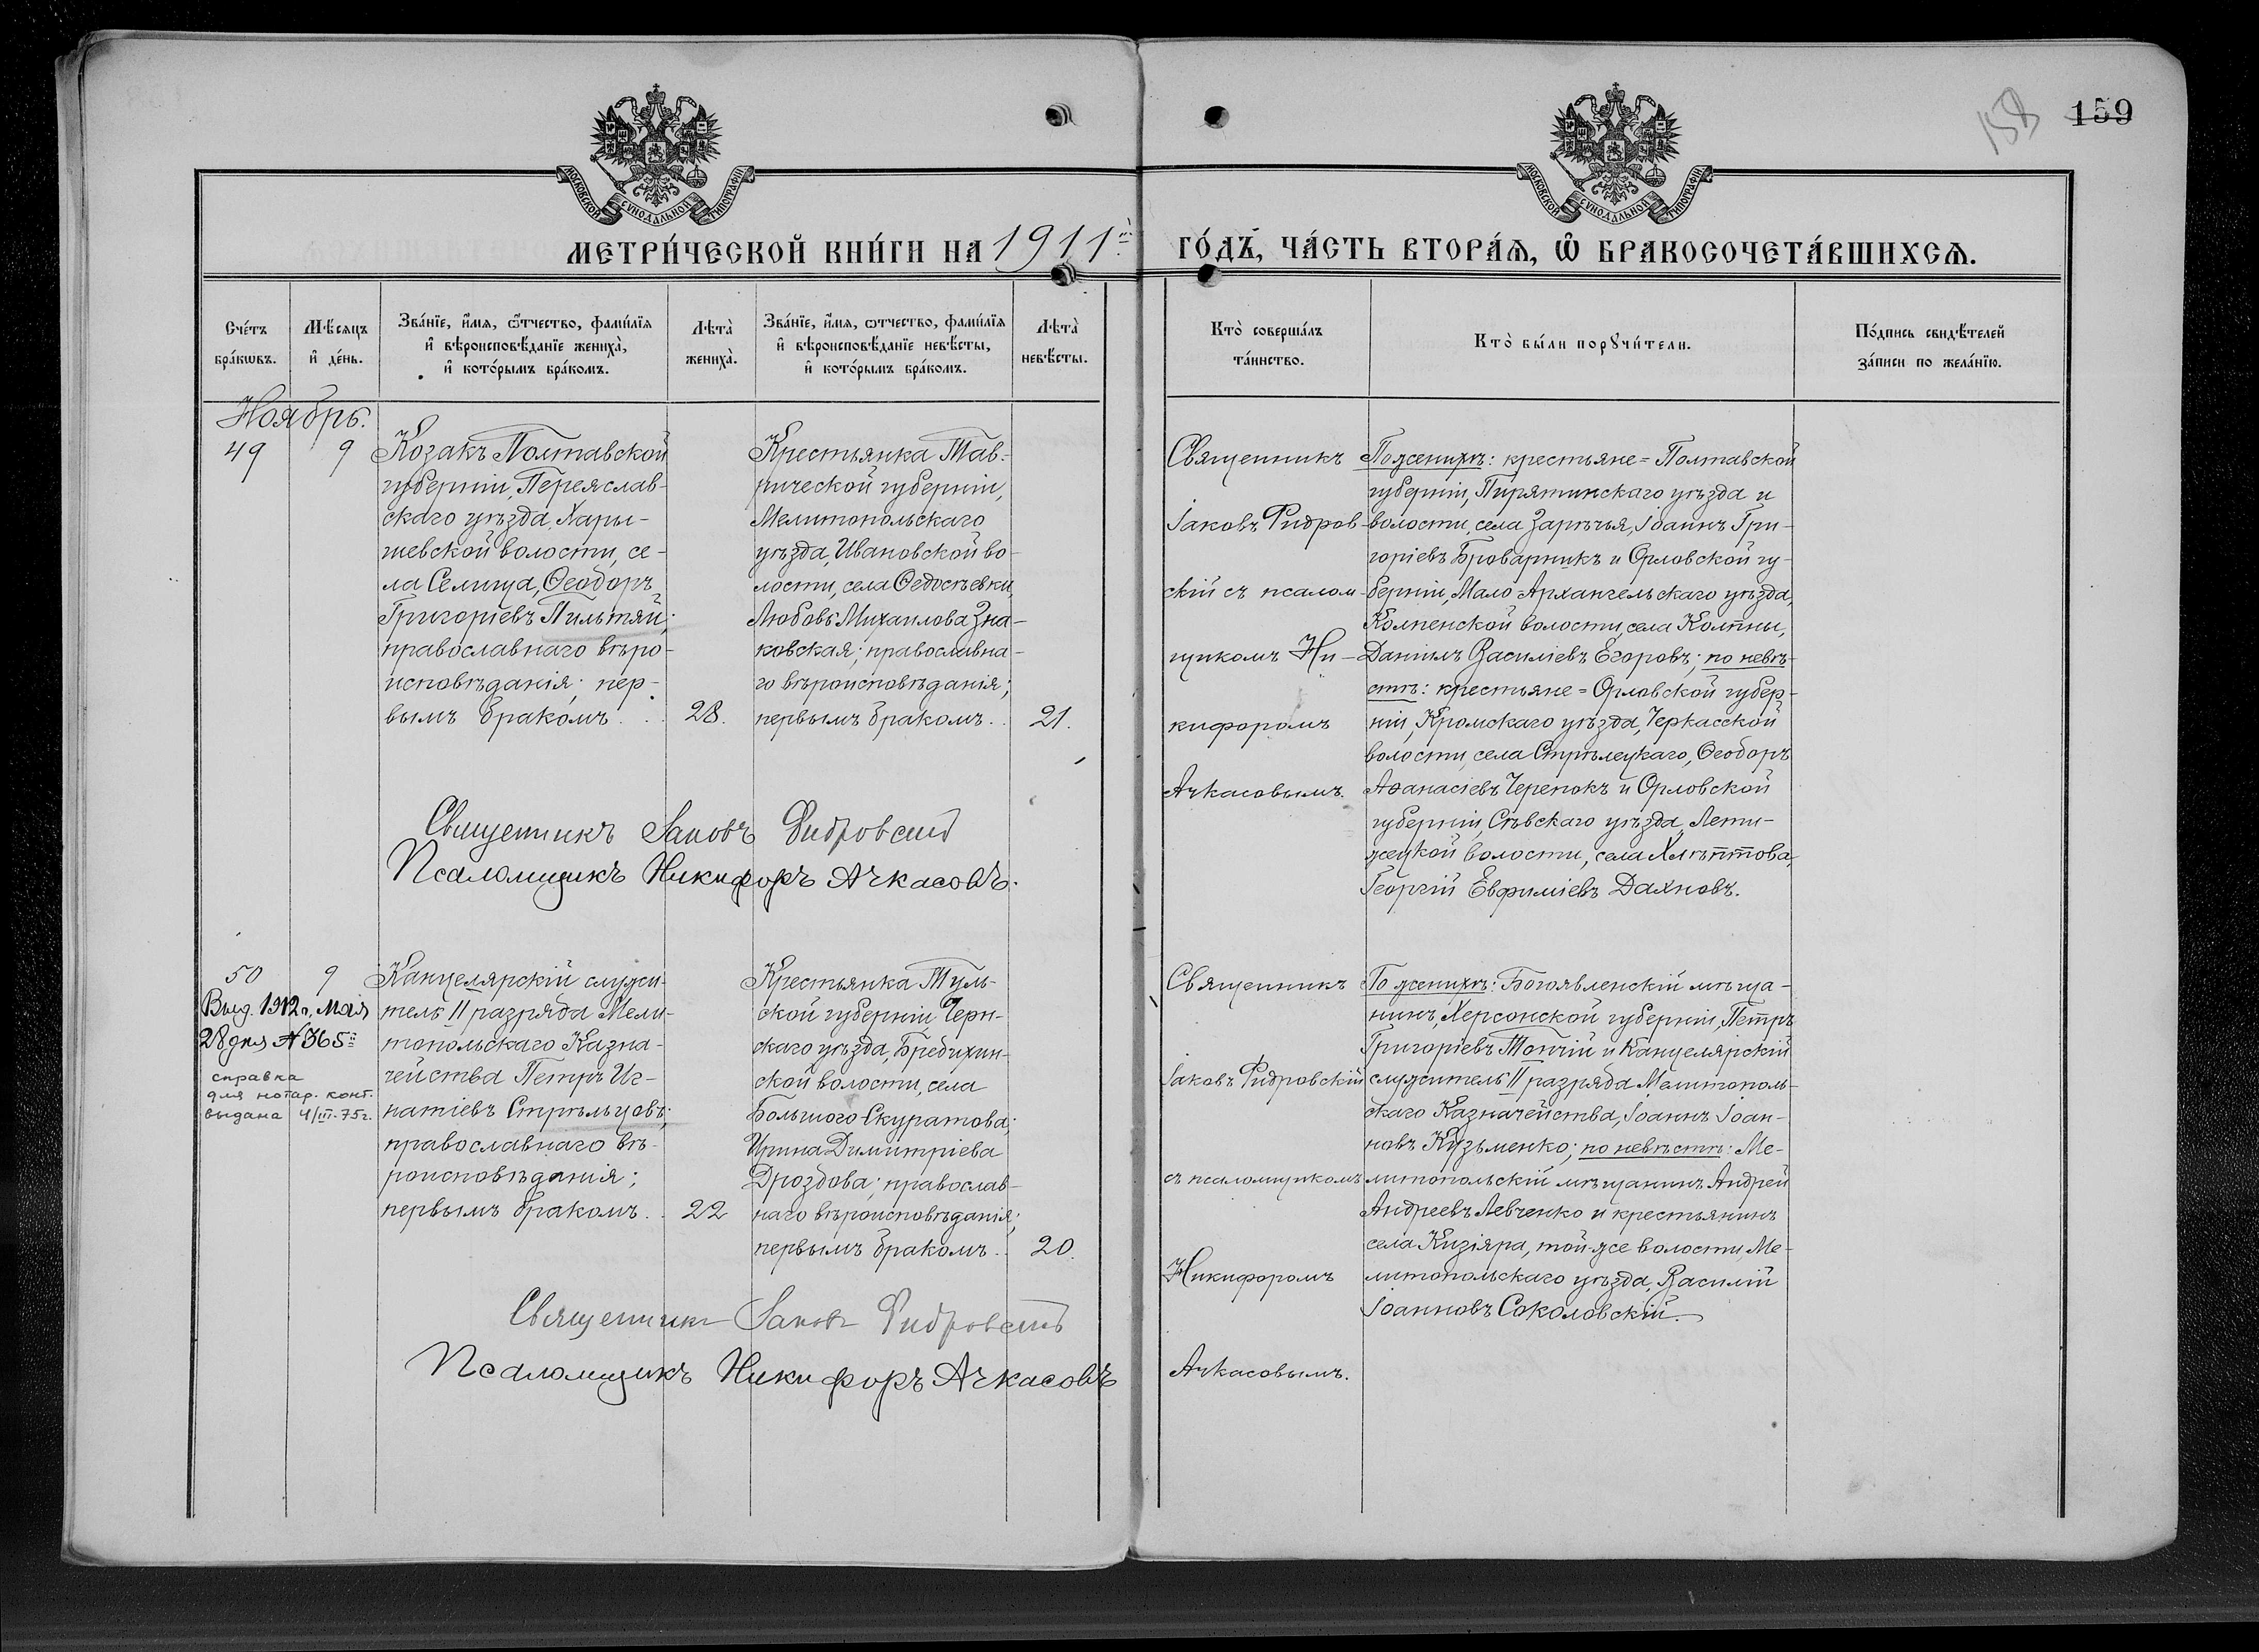 158
159
МОСКОВСКОЙ СѴНОДАЛЬНОЙ ТИПОГРАФІИ
МОСКОВСКОЙ СѴНОДАЛЬНОЙ ТИПОГРАФІИ
МЕТРИ́ЧЕСКОЙ КНИ́ГИ НА 1911й ГО́ДЪ, ЧА́СТЬ ВТОРА́Я, Ѡ БРАКОСОЧЕТА́ВШИХСѦ.
Сче́тъ
бра́кѡвъ.
Мѣ́сяцъ
и҆ де́нь.
Зва́нїе, и҆́мя, ѻ҆́тчество, фами́лїя
и҆ вѣроисповѣ́данїе жениха̀,
и҆ кото́рымъ бра́комъ.
Лѣта̀
жениха̀.
Зва́нїе, и҆́мя, ѻ҆́тчество, фами́лїя
и҆ вѣроисповѣ́данїе невѣ́сты,
и҆ кото́рымъ бра́комъ.
Лѣта̀
невѣ́сты.
Кто̀ соверша́лъ
та́инство.
Кто̀ бы́ли порꙋчи́тели.
По́дпись свидѣ́телей
за́писи по жела́нїю.
Ноябрь.
49
9
Козакъ Полтавской
губерніи, Переяслав-
скаго уѣзда, Хары-
шевской волости, се-
ла Селища, Ѳеодоръ
Григоріевъ Пильтяй;
православнаго вѣро-
исповѣданія; пер-
вымъ бракомъ . . .
28.
Крестьянка Тав-
рической губерніи,
Мелитопольскаго
уѣзда, Ивановской во-
лости, села Ѳедосѣевки,
Любовь Михаилова Зна-
ковская; православна-
го вѣроисповѣданія;
первымъ бракомъ . .
21.
Священникъ
Іаковъ Фидров-
скій съ псалом-
щикомъ Ни-
кифоромъ
Ачкасовымъ.
По женихѣ: крестьяне = Полтавской
губерніи, Пирятинскаго уѣзда и
волости, села Зарѣчья, Іоаннъ Гри-
горіевъ Броварникъ и Орловской гу-
берніи, Мало Архангельскаго уѣзда,
Колпенской волости, села Колпны,
Даніилъ Василіевъ Егоровъ; по невѣ-
стѣ: крестьяне = Орловской губер-
ніи, Кромскаго уѣзда, Черкасской
волости, села Стрѣлецкаго, Ѳеодоръ
Аѳанасіевъ Черепокъ и Орловской
губерніи, Сѣвскаго уѣзда, Лепи-
жецкой волости, села Хлѣптова,
Георгій Евфиміевъ Дахновъ.
Священникъ Іаковъ Фидровскій
Псаломщикъ Никифоръ Ачкасовъ.
50
9
Выд. 1912 г. Мая
28 дня № 365й
справка
для нотар. конт.
выдана 4/III-75г.
Канцелярскій служи-
тель II разряда Мели-
топольскаго Казна-
чейства Петръ Иг-
натіевъ Стрѣльцовъ;
православнаго вѣ-
роисповѣданія;
первымъ бракомъ . .
22
Крестьянка Туль-
ской губерніи, Черн-
скаго уѣзда, Бредихин-
ской волости, села
Большого Скуратова;
Ирина Димитріева
Дроздова; православ-
наго вѣроисповѣданія;
первымъ бракомъ . .
20.
Священникъ
Іаковъ Фидровскій
съ псаломщикомъ
Никифоромъ
Ачкасовымъ.
По женихѣ: Богоявленскій мѣща-
нинъ, Херсонской губерніи, Петръ
Григоріевъ Топчій и Канцелярскій
служитель II разряда Мелитополь-
скаго Казначейства, Іоаннъ Іоан-
новъ Кузьменко; по невѣстѣ: Ме-
литопольскій мѣщанинъ Андрей
Андреевъ Левченко и крестьянинъ
села Кизіяра, той же волости, Ме-
литопольскаго уѣзда, Василій
Іоанновъ Соколовскій.
Священникъ Іаковъ Фидровскій
Псаломщикъ Никифоръ Ачкасовъ